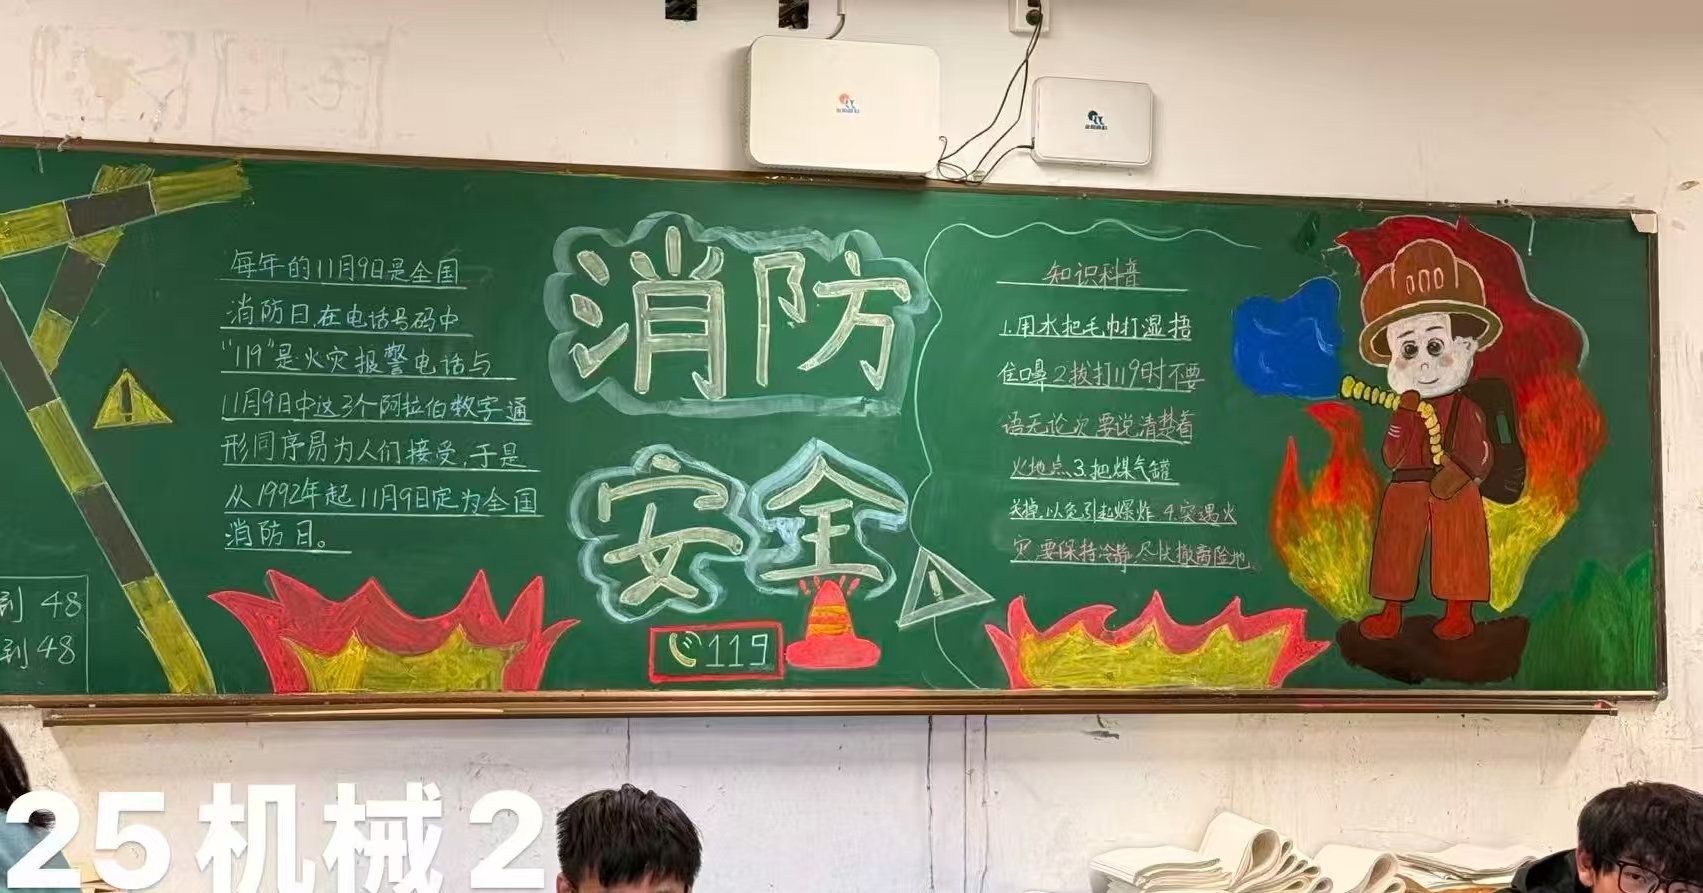 每年的11月9日是全国
消防日,在电话号码中
"119"是火灾报警电话与
11月9日中这3个阿拉伯数字通
形同序易为人们接受,于是
从1992年起11月9日定为全国
消防日。
到 48
到 48
消防
安全
119
知识科普
1.用水把毛巾打湿捂
住口鼻2拨打119时不要
语无论次要说清楚着
火地点3.把煤气罐
关掉,以免引起爆炸 4.突遇火
灾,要保持冷静,尽快撤离险地
25机械2